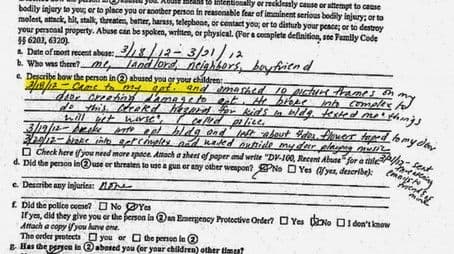 you or your children. Abuse means to intentionally or recklessly cause or attempt to cause
bodily injury to you; or to place you or another person in reasonable fear of imminent serious bodily injury; or to
molest, attack, hit, stalk, threaten, batter, harass, telephone, or contact you; or to disturb your peace; or to destroy
your personal property. Abuse can be spoken, written, or physical. (For a complete definition, see Family Code
§§ 6203, 6320).
a. Date of most recent abuse: 3/18/12 - 3/21/12
b. Who was there? me, landlord, neighbors, boyfriend
c. Describe how the person in ② abused you or your children:
3/18/12 - Came to my apt. and smashed 10 picture frames on my
door creating damage to apt. He broke into complex to
do this. Created Hazard for kids in bldg. texted me "things
will get worse". I called police.
3/19/12 - broke into apt bldg and left about 4doz flowers taped to my door
3/20/12 - broke into apt complex and waited outside my door playing music
3/21/12 - sent
☐ Check here if you need more space. Attach a sheet of paper and write "DV-100, Recent Abuse" for a title.
d. Did the person in ② use or threaten to use a gun or any other weapon? ☑ No ☐ Yes (If yes, describe):
e. Describe any injuries: none
f. Did the police come? ☐ No ☑ Yes
If yes, did they give you or the person in ② an Emergency Protective Order? ☐ Yes ☑ No ☐ I don't know
Attach a copy if you have one.
The order protects ☐ you or ☐ the person in ②
g. Has the person in ② abused you (or your children) other times?